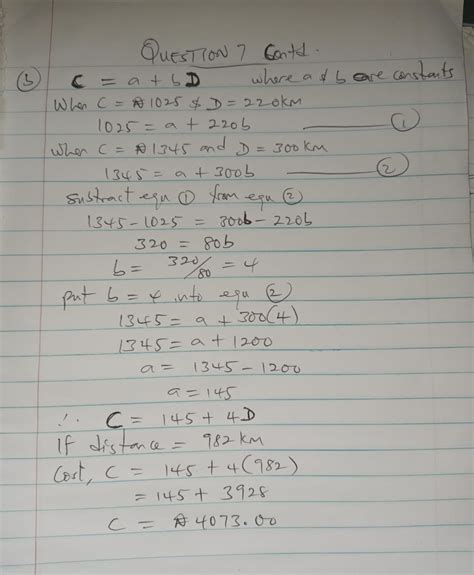 QUESTION 7 Contd.
(b) C = a + bD where a & b are constants
When C = ₦1025 & D = 220km
1025 = a + 220b ——— (1)
when C = ₦1345 and D = 300km
1345 = a + 300b ——— (2)
subtract equ (1) from equ (2)
1345 - 1025 = 300b - 220b
320 = 80b
b = 320/80 = 4
put b = 4 into equ (2)
1345 = a + 300(4)
1345 = a + 1200
a = 1345 - 1200
a = 145
∴ C = 145 + 4D
If distance = 982km
Cost, C = 145 + 4(982)
= 145 + 3928
C = ₦4073.00